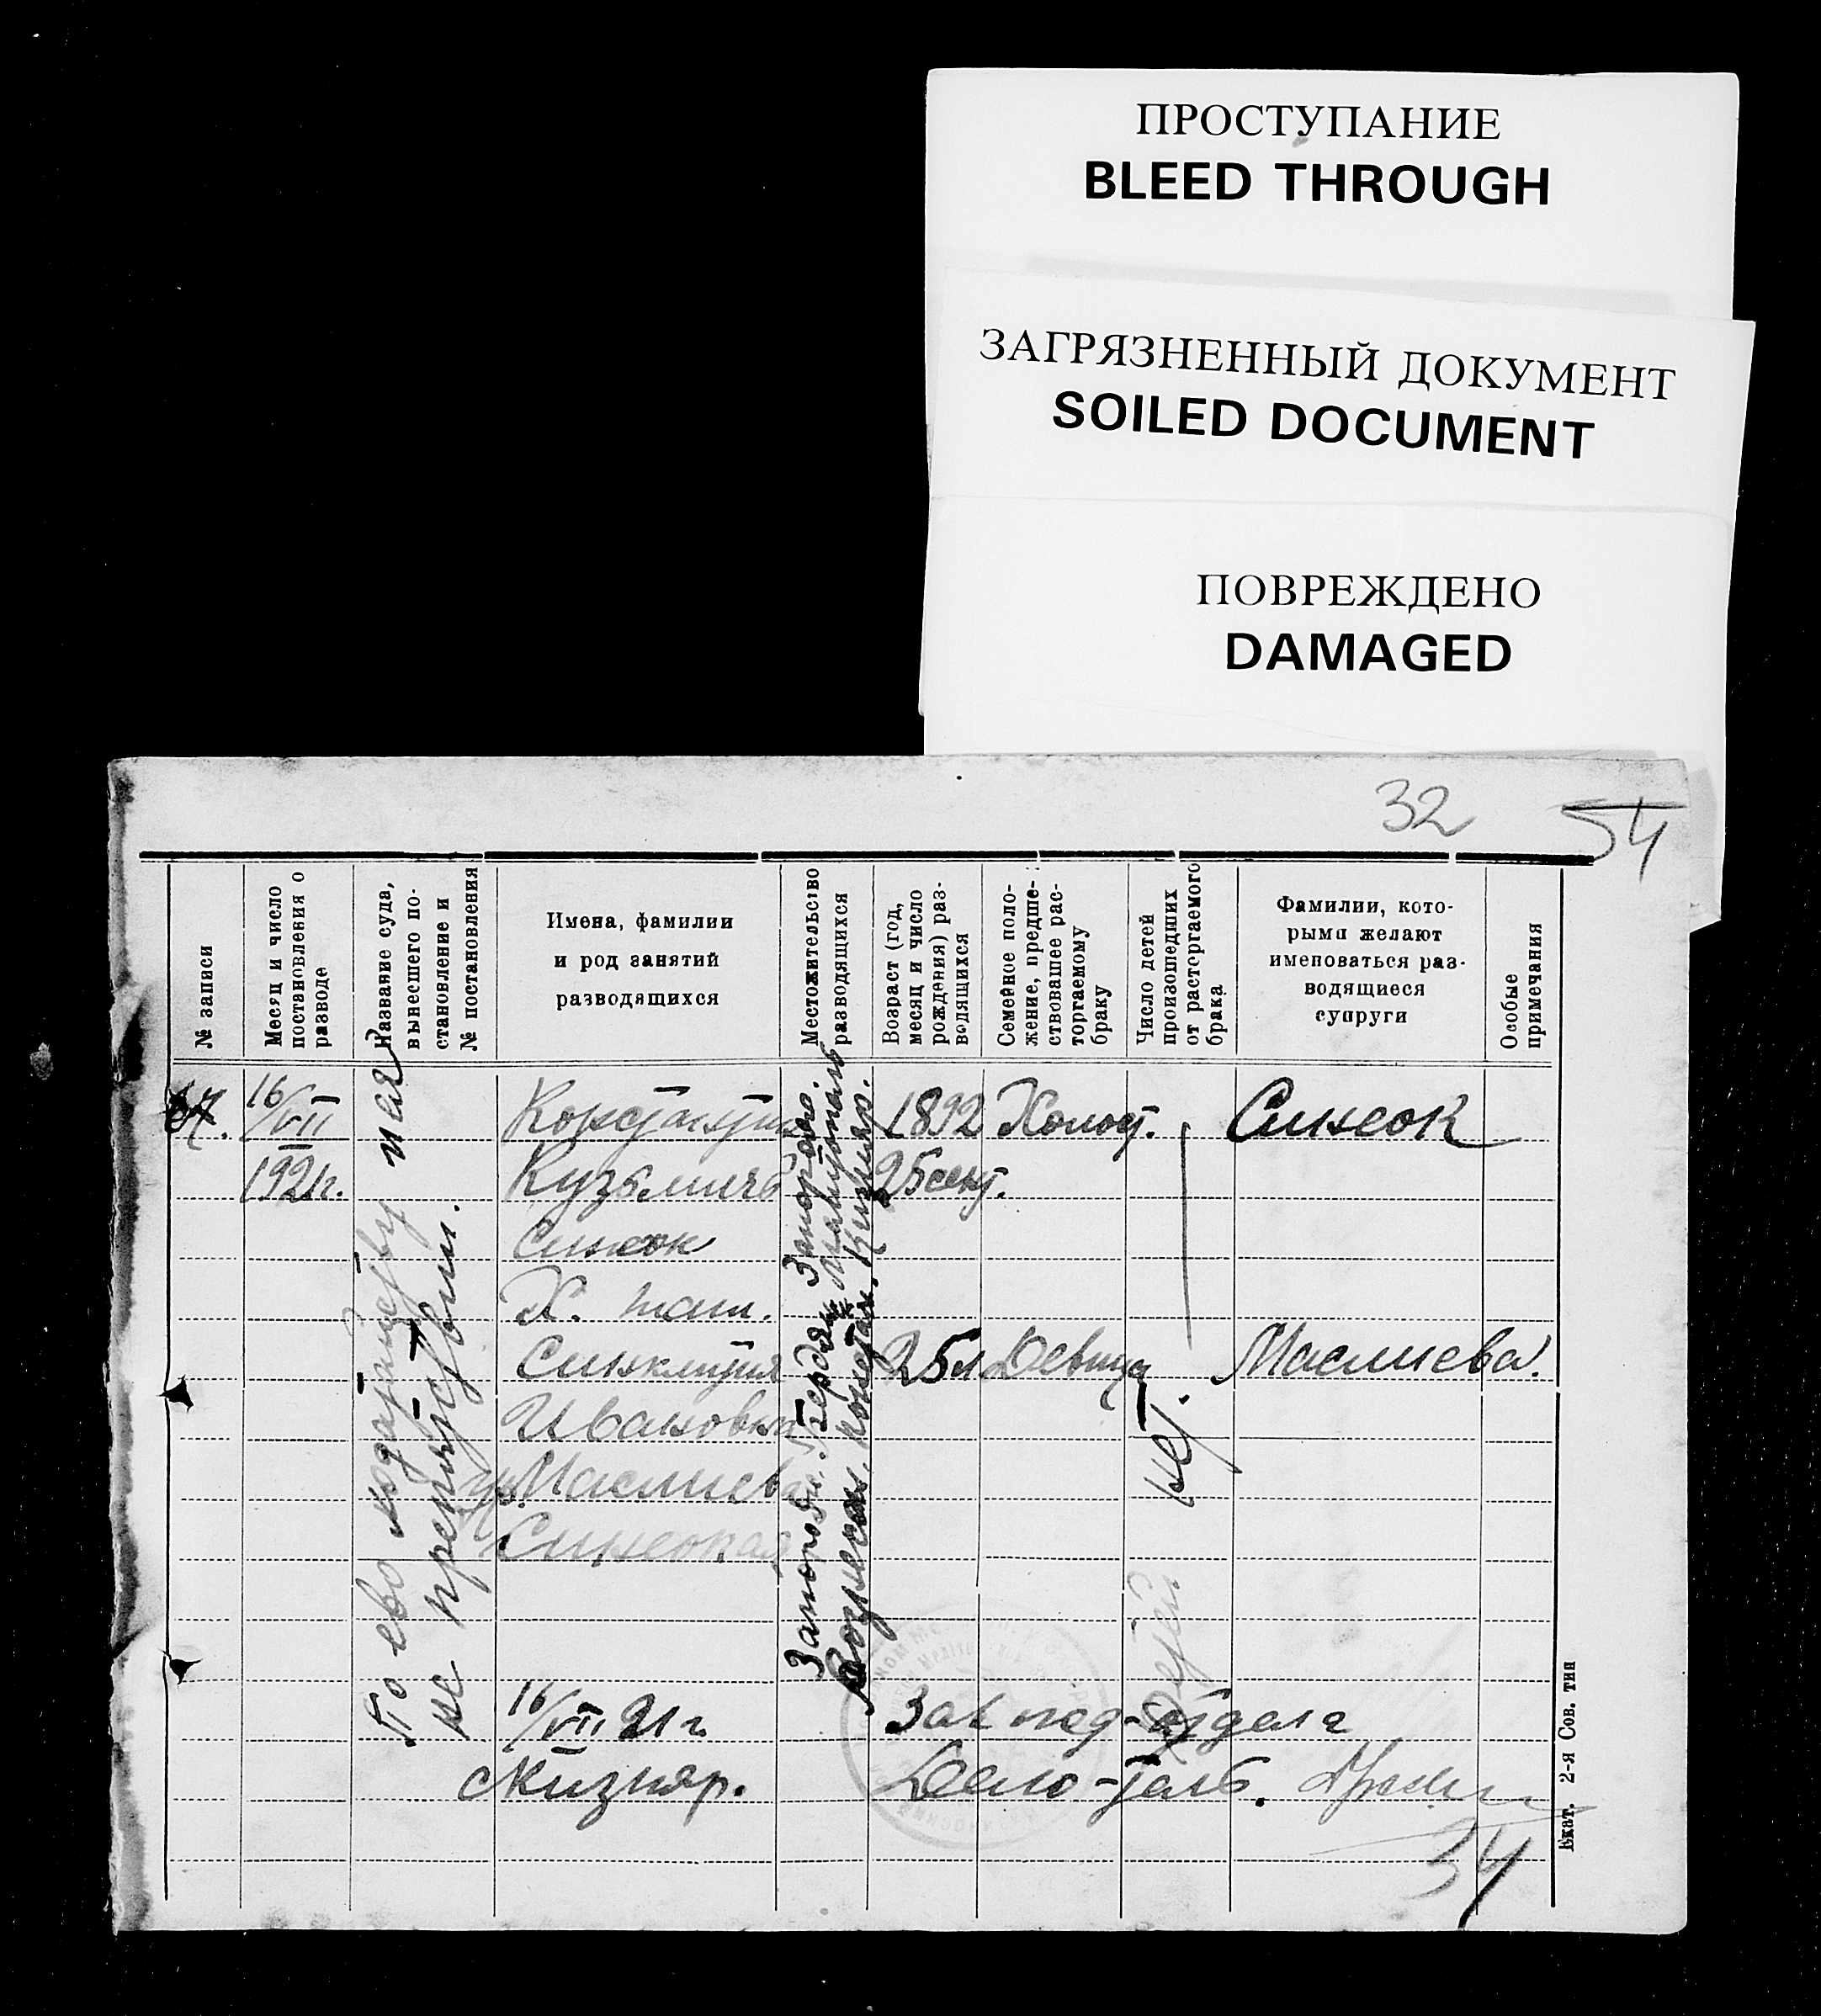 ПРОСТУПАНИЕ
BLEED THROUGH
ЗАГРЯЗНЕННЫЙ ДОКУМЕНТ
SOILED DOCUMENT
ПОВРЕЖДЕНО
DAMAGED
32
54
№ записи
Месяц и число
постановления о
разводе
Название суда,
вынесшего по-
становление и
№ постановления
Имена, фамилии
и род занятий
разводящихся
Местожительсво
разводящихся
Возраст (год,
месяц и число
рождения) раз-
водящихся
Семейное поло-
жение, предше-
ствовавшее рас-
торгаемому
браку
Число детей
происшедших
от расторгаемого
брака
Фамилии, кото-
рыми желают
именоваться раз-
водящиеся
супруги
Особые
примечания
16/VII
1921г.
По ево ходатайству
не препятствии.
Константин
Кузьмичь
Синеок
Х. паш.
Синклития
Ивановна
Маслиева
Синеокая
Запорож.
1892
25 сент.
25 л
Холост.
Девица
нет.
детей
Синеок
Маслиева.
16/VII 21 г.
Зав. под-отдела
Дело-таль.
34
Екат. 2-я Сов. тип